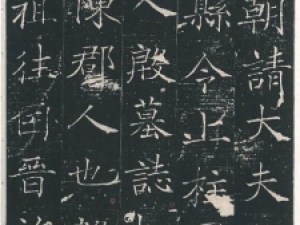 朝請大夫
縣令上柱
人殷墓誌
陳郡人也
祖往因晉